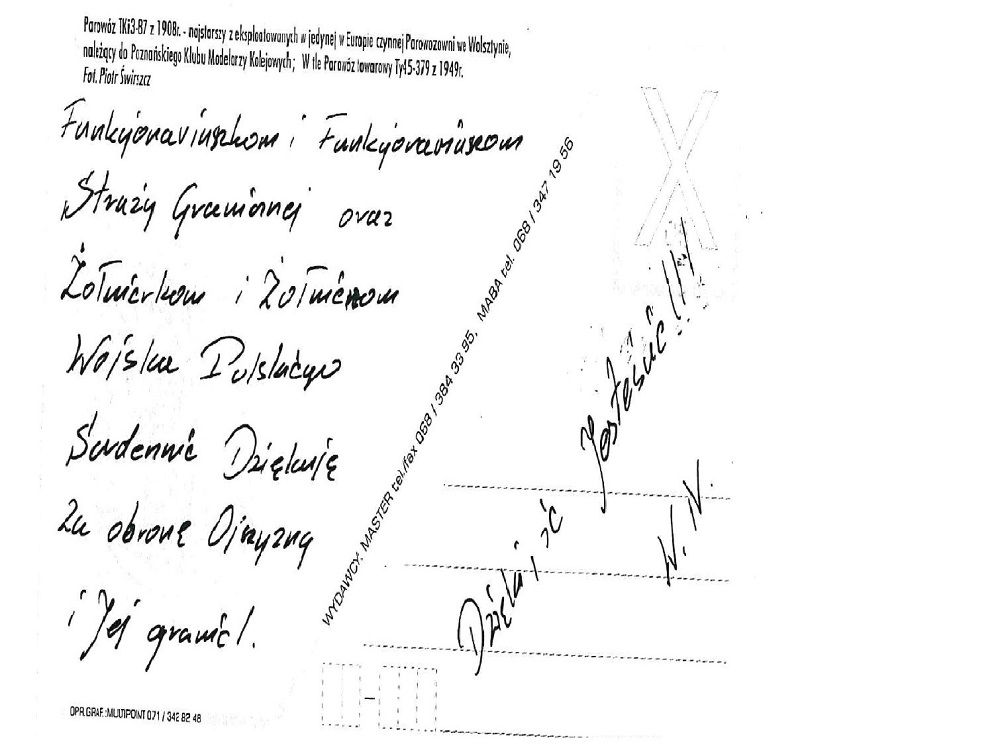 Parowóz TKi3-87 z 1908r. - najstarszy z eksploatowanych w jedynej w Europie czynnej Parowozowni we Wolsztynie,
należący do Poznańskiego Klubu Modelarzy Kolejowych; W tle Parowóz towarowy Ty45-379 z 1949r.
Fot. Piotr Świrszcz
Funkcjonariuszkom i Funkcjonariuszom
Straży Granicznej oraz
Żołnierkom i Żołnierzom
Wojska Polskiego
Serdecznie Dziękuję
Za obronę Ojczyzny
i Jej granic!.
WYDAWCY: MASTER tel./fax 068 / 384 33 95, MABA tel. 068 / 347 19 56
Dzięki że Jesteście!!!
W. W.
OPR.GRAF.:MULTIPOINT 071 / 342 82 48